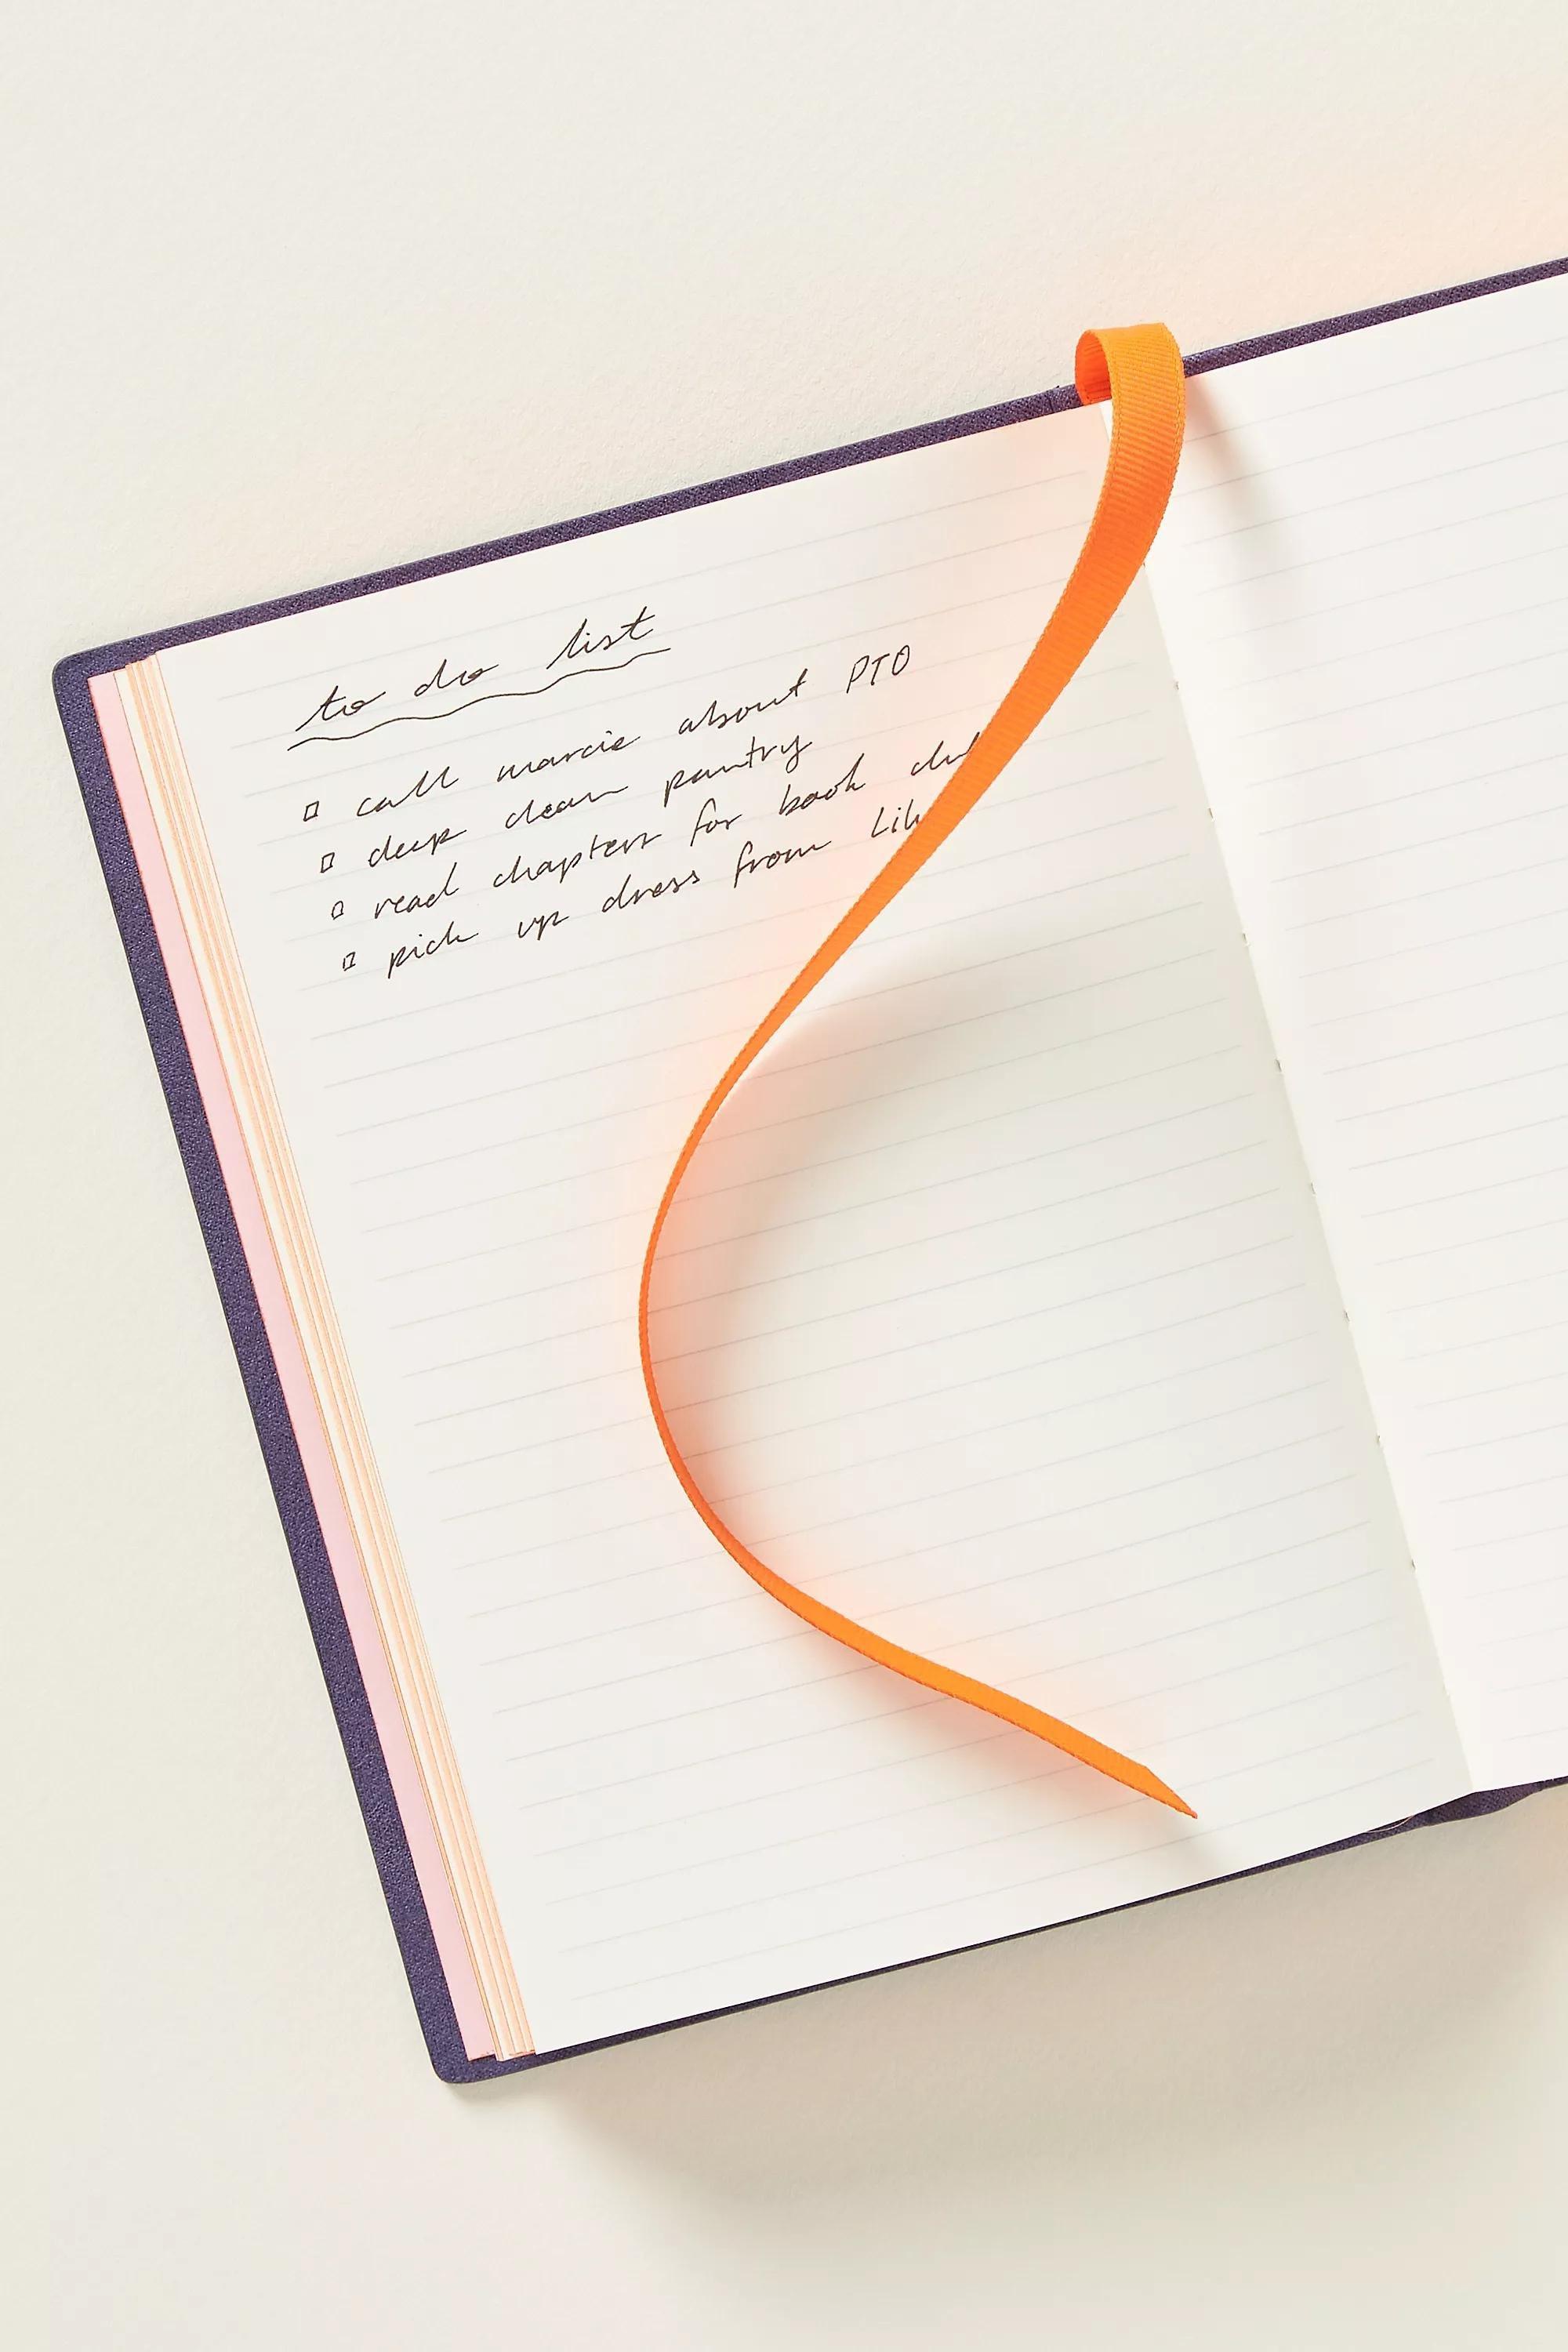 to do list
call marcie about PTO
deep clean pantry
read chapters for book
pick up dress from